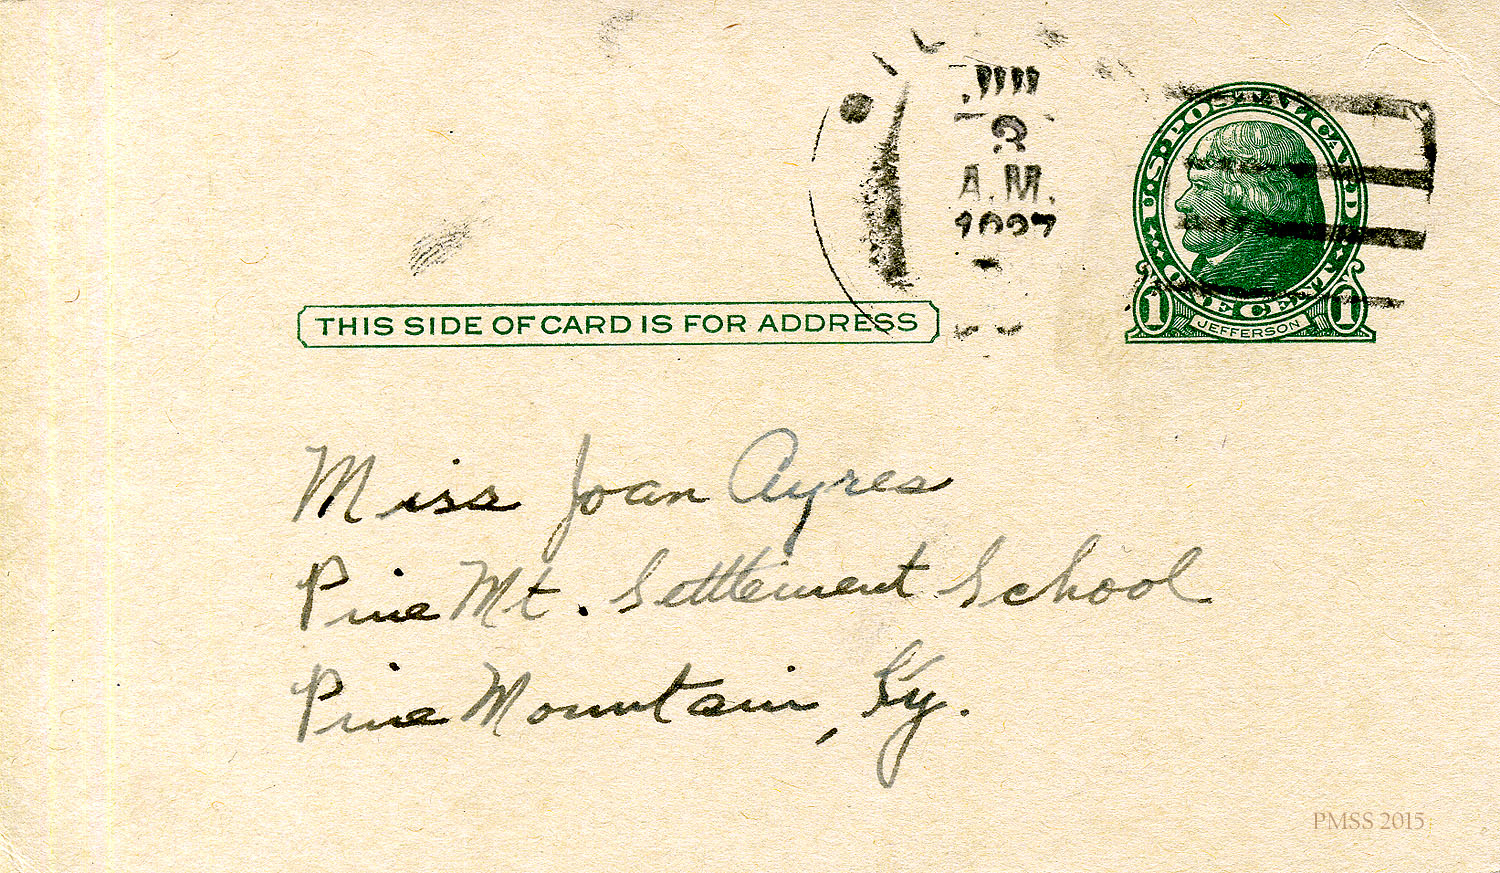 A.M.
U.S. POSTAL CARD
ONE CENT
1 JEFFERSON 1
THIS SIDE OF CARD IS FOR ADDRESS
Miss Joan Ayres
Pine Mt. Settlement School
Pine Mountain, Ky.
PMSS 2015